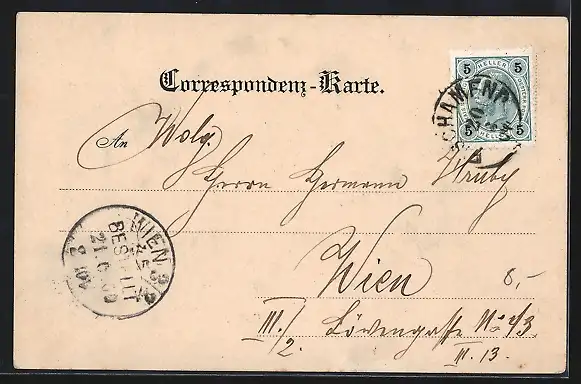 Correspondenz-Karte.
5 HELLER 5
5 HELLER 5
An Wolg.
Herrn Hermann Hruby
Wien
III./2. Löwengasse No 2/3
II. 13.
8,-
WIEN 3/2
BESTELLT